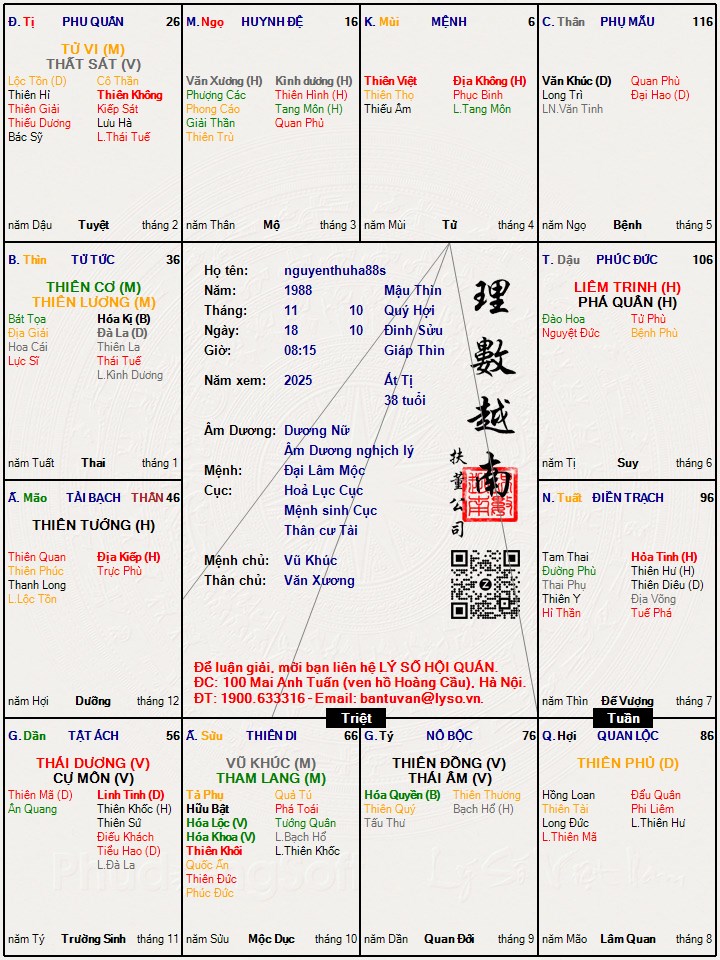 Đ. Tị PHU QUÂN 26
TỬ VI (M)
THẤT SÁT (V)
Lộc Tồn (D) Cô Thần
Thiên Hỉ Thiên Không
Thiên Giải Kiếp Sát
Thiếu Dương Lưu Hà
Bác Sỹ L.Thái Tuế
năm Dậu Tuyệt tháng 2
M. Ngọ HUYNH ĐỆ 16
Văn Xương (H) Kình dương (H)
Phượng Các Thiên Hình (H)
Phong Cáo Tang Môn (H)
Giải Thần Quan Phủ
Thiên Trù
năm Thân Mộ tháng 3
K. Mùi MỆNH 6
Thiên Việt Địa Không (H)
Thiên Thọ Phục Binh
Thiếu Âm L.Tang Môn
năm Mùi Tử tháng 4
C. Thân PHỤ MẪU 116
Văn Khúc (D) Quan Phù
Long Trì Đại Hao (D)
LN.Văn Tinh
năm Ngọ Bệnh tháng 5
B. Thìn TỬ TỨC 36
THIÊN CƠ (M)
THIÊN LƯƠNG (M)
Bát Tọa Hóa Kị (B)
Địa Giải Đà La (D)
Hoa Cái Thiên La
Lực Sĩ Thái Tuế
L.Kình Dương
năm Tuất Thai tháng 1
Họ tên: nguyenthuha88s
Năm: 1988 Mậu Thìn
Tháng: 11 10 Quý Hợi
Ngày: 18 10 Đinh Sửu
Giờ: 08:15 Giáp Thìn
Năm xem: 2025 Ất Tị
38 tuổi
Âm Dương: Dương Nữ
Âm Dương nghịch lý
Mệnh: Đại Lâm Mộc
Cục: Hoả Lục Cục
Mệnh sinh Cục
Thân cư Tài
Mệnh chủ: Vũ Khúc
Thân chủ: Văn Xương
理數越南
扶董公司
Để luận giải, mời bạn liên hệ LÝ SỐ HỘI QUÁN.
ĐC: 100 Mai Anh Tuấn (ven hồ Hoàng Cầu), Hà Nội.
ĐT: 1900.633316 - Email: bantuvan@lyso.vn.
T. Dậu PHÚC ĐỨC 106
LIÊM TRINH (H)
PHÁ QUÂN (H)
Đào Hoa Tử Phù
Nguyệt Đức Bệnh Phù
năm Tị Suy tháng 6
Ấ. Mão TÀI BẠCH THÂN 46
THIÊN TƯỚNG (H)
Thiên Quan Địa Kiếp (H)
Thiên Phúc Trực Phù
Thanh Long
L.Lộc Tồn
năm Hợi Dưỡng tháng 12
N. Tuất ĐIỀN TRẠCH 96
Tam Thai Hỏa Tinh (H)
Đường Phù Thiên Hư (H)
Thai Phụ Thiên Diêu (D)
Thiên Y Địa Võng
Hỉ Thần Tuế Phá
năm Thìn Đế Vượng tháng 7
Triệt
Tuần
G. Dần TẬT ÁCH 56
THÁI DƯƠNG (V)
CỰ MÔN (V)
Thiên Mã (D) Linh Tinh (D)
Ân Quang Thiên Khốc (H)
Thiên Sứ
Điếu Khách
Tiểu Hao (D)
L.Đà La
năm Tý Trường Sinh tháng 11
Ấ. Sửu THIÊN DI 66
VŨ KHÚC (M)
THAM LANG (M)
Tả Phụ Quả Tú
Hữu Bật Phá Toái
Hóa Lộc (V) Tướng Quân
Hóa Khoa (V) L.Bạch Hổ
Thiên Khôi L.Thiên Khốc
Quốc Ấn
Thiên Đức
Phúc Đức
năm Sửu Mộc Dục tháng 10
G. Tý NÔ BỘC 76
THIÊN ĐỒNG (V)
THÁI ÂM (V)
Hóa Quyền (B) Thiên Thương
Thiên Quý Bạch Hổ (H)
Tấu Thư
năm Dần Quan Đới tháng 9
Q. Hợi QUAN LỘC 86
THIÊN PHỦ (D)
Hồng Loan Đẩu Quân
Thiên Tài Phi Liêm
Long Đức L.Thiên Hư
L.Thiên Mã
năm Mão Lâm Quan tháng 8